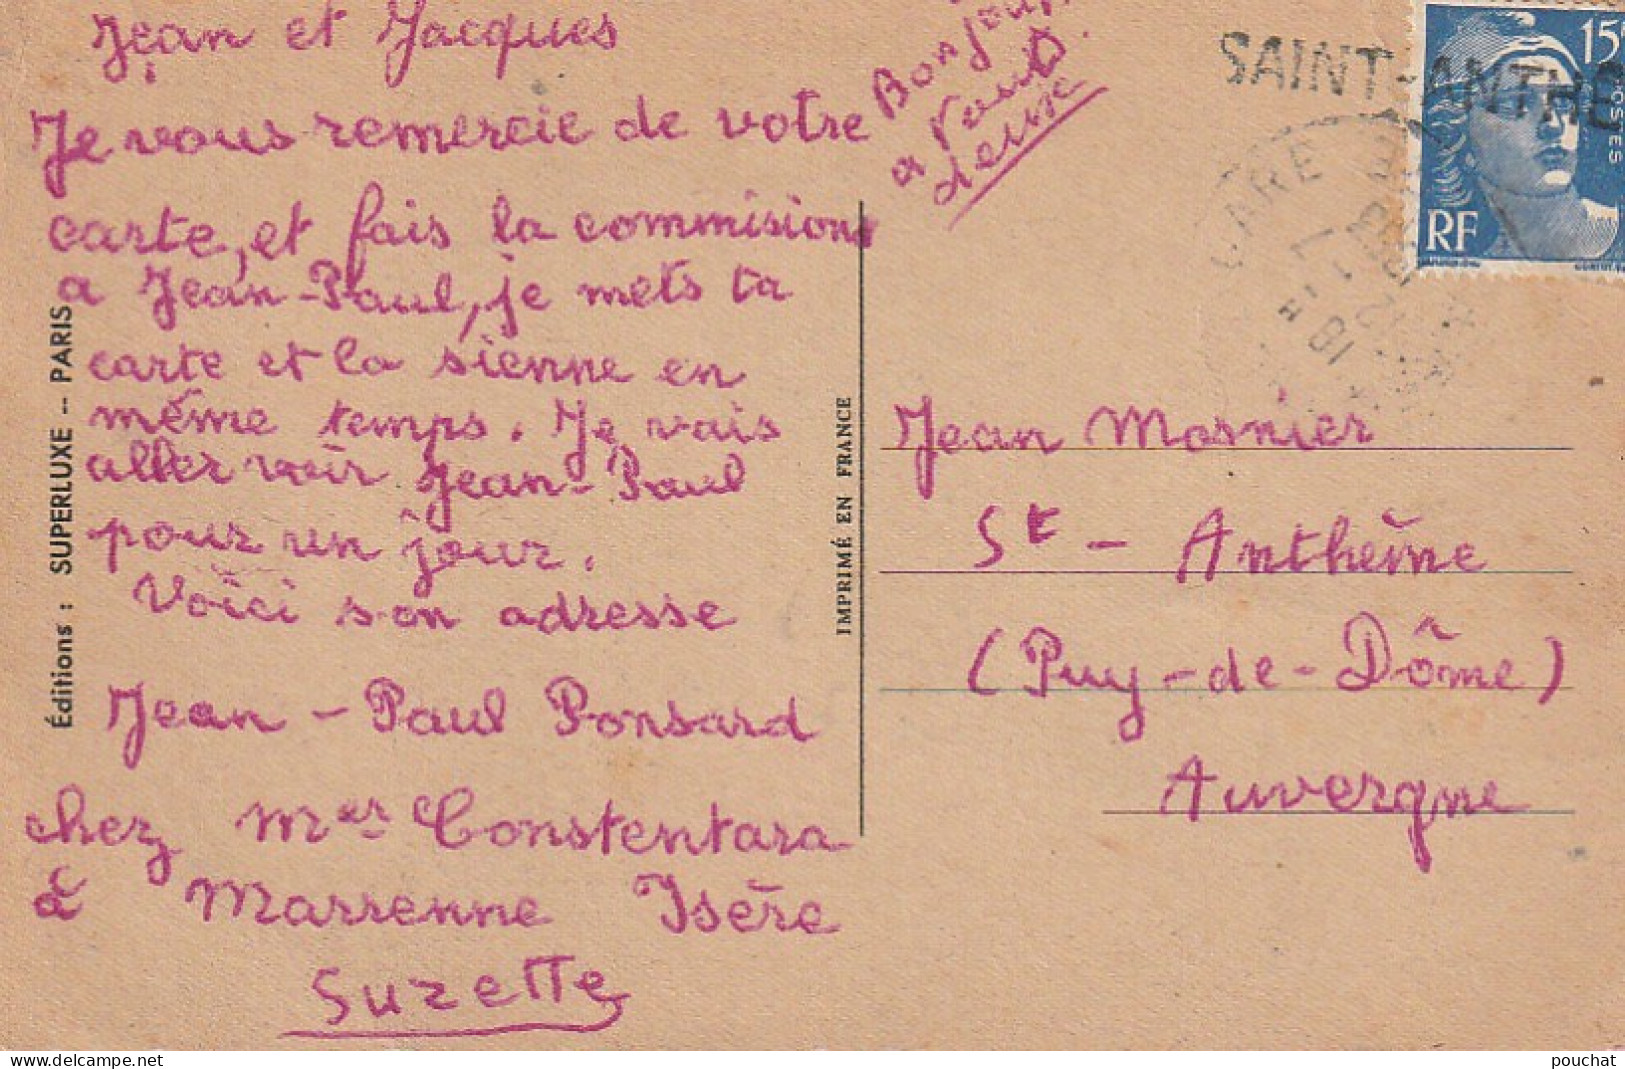 Jean et Jacques
Je vous remercie de votre
carte, et fais la commisions
a Jean-Paul, je mets ta
carte et la sienne en
même temps. Je vais
aller voir Jean-Paul
pour un jour.
Voici son adresse
Jean-Paul Ponsard
chez Mer Constentara
à Marrenne Isère
Suzette
Bonjour
a vous
deux
Éditions : SUPERLUXE -- PARIS
IMPRIMÉ EN FRANCE
SAINT-ANTHE
15F
POSTES
RF
Jean Mosnier
St - Anthème
(Puy-de-Dôme)
Auvergne
pouchat